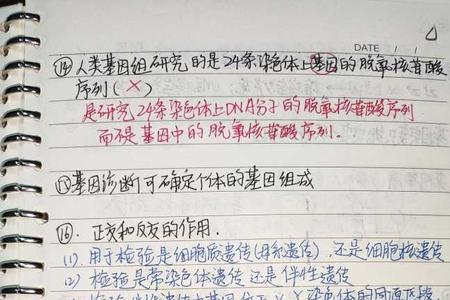 DATE / /
⑭ 人类基因组研究的是24条染色体上基因的脱氧核苷酸
序列(×)
是研究24条染色体上DNA分子的脱氧核苷酸序列
而不是基因中的脱氧核苷酸序列。
⑮基因诊断可确定个体的基因组成
⑯. 正交和反交的作用.
(1) 用于检验是细胞质遗传(母系遗传),还是细胞核遗传
(2) 检验是常染色体遗传还是伴性遗传